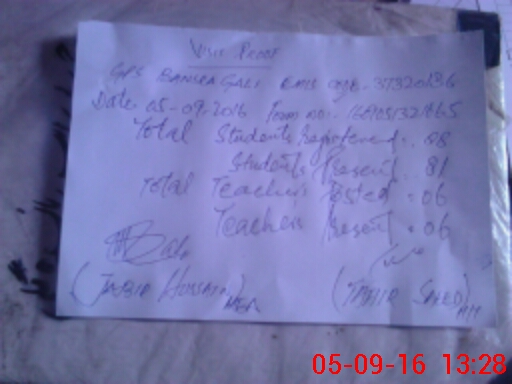 Visit Proof
GPS BANSRA GALI EMIS code- 37320136
Date 05-09-2016 Form no:-
Total Students registered:. 98
Students Present:. 81
Total Teachers Posted = 06
Teachers Present = 06
(TAHIR SAEED)
05-09-16 13:28